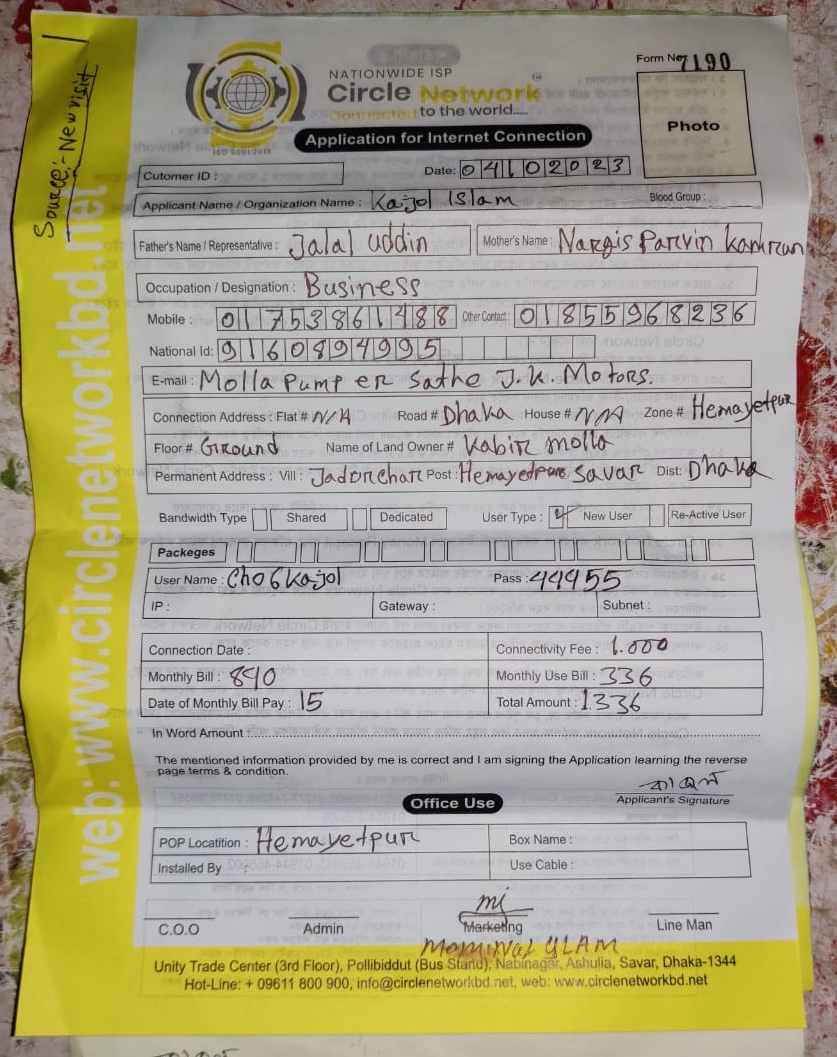 Source:- New visit
web: www.circlenetworkbd.net
NATIONWIDE ISP
Circle Network
Connected to the world.....
ISO 9001:2015
Form No 7190
Photo
Application for Internet Connection
Cutomer ID :
Date: 04102023
Applicant Name / Organization Name : Kajol Islam Blood Group :
Father's Name / Representative : Jalal Uddin Mother's Name : Nargis Parvin Kamrun
Occupation / Designation : Business
Mobile : 01753861488 Other Contact : 01855968236
National Id: 9160894995
E-mail : Molla Pump er Sathe J.K. Motors.
Connection Address : Flat # N/A Road # Dhaka House # N/A Zone # Hemayetpur
Floor # Ground Name of Land Owner # Kabir molla
Permanent Address : Vill : Jadurchar Post : Hemayedpur Savar Dist: Dhaka
Bandwidth Type Shared Dedicated User Type : New User Re-Active User
Packeges
User Name : Cho6kajol Pass : 44455
IP : Gateway : Subnet :
Connection Date : Connectivity Fee : 1.000
Monthly Bill : 840 Monthly Use Bill : 336
Date of Monthly Bill Pay : 15 Total Amount : 1336
In Word Amount :
The mentioned information provided by me is correct and I am signing the Application learning the reverse
page terms & condition.
কাজল
Applicant's Signature
Office Use
POP Locatition : Hemayetpur Box Name :
Installed By : Use Cable :
mi
C.O.O Admin Marketing Line Man
Mominul ISLAM
Unity Trade Center (3rd Floor), Pollibiddut (Bus Stand), Nabinagar, Ashulia, Savar, Dhaka-1344
Hot-Line: + 09611 800 900, info@circlenetworkbd.net, web: www.circlenetworkbd.net